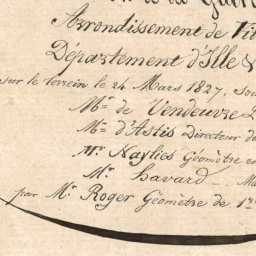 Arrondissement de Vit
Département d'Ille &
sur le terrein le 24 Mars 1827, sou
Mr. de Vendeuvre
Mr. d'Astis Directeur de
Mr. Naylies Géomètre en
Mr. havard Ma
par Mr. Roger Géomètre de 1re